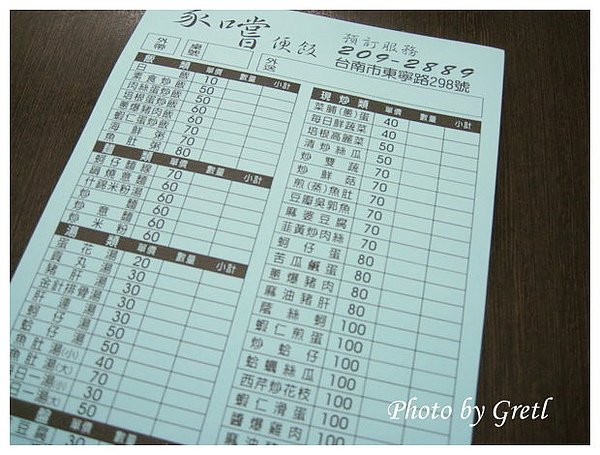 家嚐 便飯
預訂服務
209-2889
台南市東寧路298號
外帶
桌號
外送
飯類 單價 數量 小計
白飯 10
素食炒飯 50
肉絲蛋炒飯 50
培根蛋炒飯 60
蔥爆豬肉飯 60
蝦仁蛋炒飯 70
海鮮粥 70
魚肚粥 80
麵類 單價 數量 小計
蚵仔麵線 70
鍋燒意麵 60
什錦米粉湯 60
炒麵 60
炒意麵 60
炒米粉 60
湯類 單價 數量 小計
蛋花湯 20
貢丸湯 30
豬肝湯 30
金針排骨湯 30
肝連湯 30
蚵仔湯 50
蛤仔湯 50
魚肚湯(小) 40
魚肚湯(大) 70
30
50
單價 數量
30
現炒類 單價 數量 小計
菜脯(蔥)蛋 40
每日鮮蔬菜 40
培根高麗菜 50
清炒絲瓜 50
炒雙蔬 70
炒鮮菇 70
煎(蒸)魚肚 70
豆瓣吳郭魚 70
麻婆豆腐 70
韭黃炒肉絲 70
蚵仔蛋 80
苦瓜鹹蛋 80
蔥爆豬肉 80
麻油豬肝 80
蔭絲蚵 100
蝦仁煎蛋 100
炒蛤仔 100
蛤蠣絲瓜 100
西芹炒花枝 100
蝦仁滑蛋 100
醬爆雞肉 100
麻油雞
Photo by Gretl